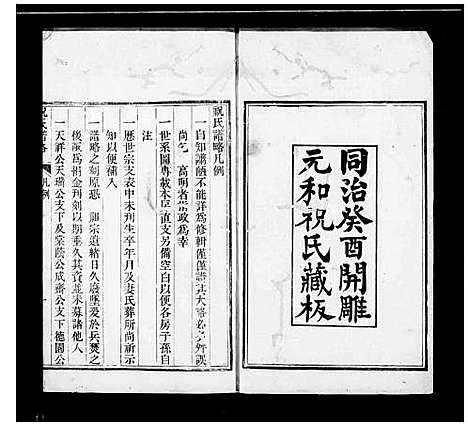 同治癸酉開雕
元和祝氏藏板
祝氏譜略凡例
一自知譾陋不能詳爲修輯僅僅譜其大略
尚乞 高明者常政爲幸
一世系圖專載本 直支另備空白以便各房子孫自
注
一歷世宗支表中未列生卒年月及妻氏葬所尚祈示
知以便補入
一譜略之刻原恐 宗追緒日久廢墜爰於兵燹之
後 爲捐金刊刻以期垂久其資並未募諸他人
一天祥公天瑞公支下及棠蔭公成齋公支下德園公
祝氏譜略 凡例 一